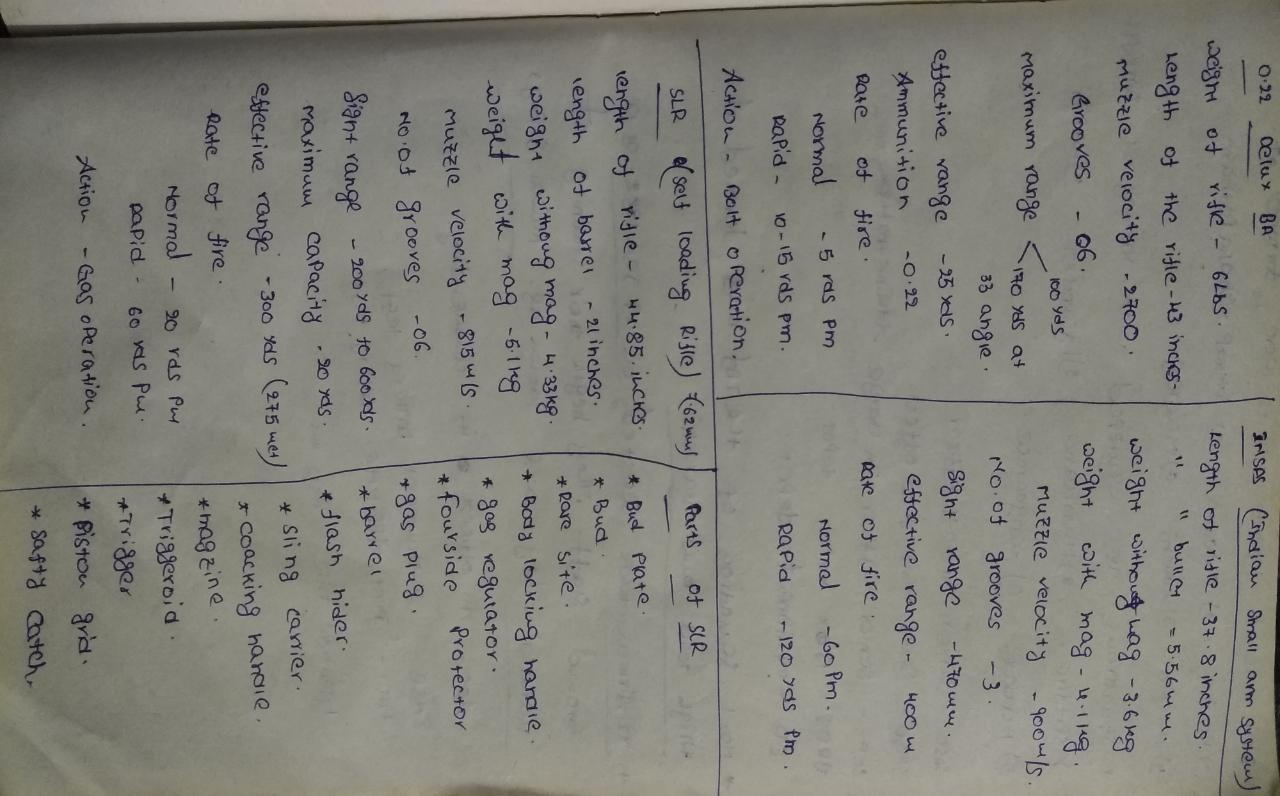 0.22 Delux BA
weight of rifle - 6Lbs.
Length of the rifle - 43 inches-
Muzzle velocity - 2700.
Grooves - 06.
Maximum range < 100 yds
170 yds at
33 angle.
effective range - 25 yds.
Ammunition - 0.22
Rate of fire.
Normal - 5 rds pm
Rapid - 10-15 rds pm.
Action - Bolt operation.
INSAS (Indian Small arm system)
Length of rifle - 37.8 inches.
" " bullet = 5.56mm.
weight without mag - 3.6kg
weight with mag - 4.1kg.
Muzzle velocity - 900m/s.
No. of grooves - 3.
Sight range - 470mm.
effective range - 400 m
Rate of fire.
Normal - 60 Pm.
Rapid - 120 yds Pm.
SLR (self loading Rifle) 7.62mm)
length of rifle - 44.85. inches.
length of barrel - 21 inches.
weight withoug mag - 4.33kg.
weight with mag - 5.1kg
Muzzle velocity - 815 m/s.
No. of grooves - 06.
Sight range - 200 yds to 600 yds.
Maximum capacity - 20 yds.
effective range - 300 yds (275 met)
Rate of fire.
Normal - 20 rds Pm
Rapid - 60 rds Pm.
Action - Gas operation.
Parts of SLR
* Bud Plate.
* Bud.
* Rare site.
* Body locking handle.
* gas regulator.
* fourside Protector
* gas plug.
* barrel
* flash hider.
* sling carrier.
* coacking handle.
* magzine.
* Triggeroid.
* Trigger
* Piston grid.
* Safty catch.